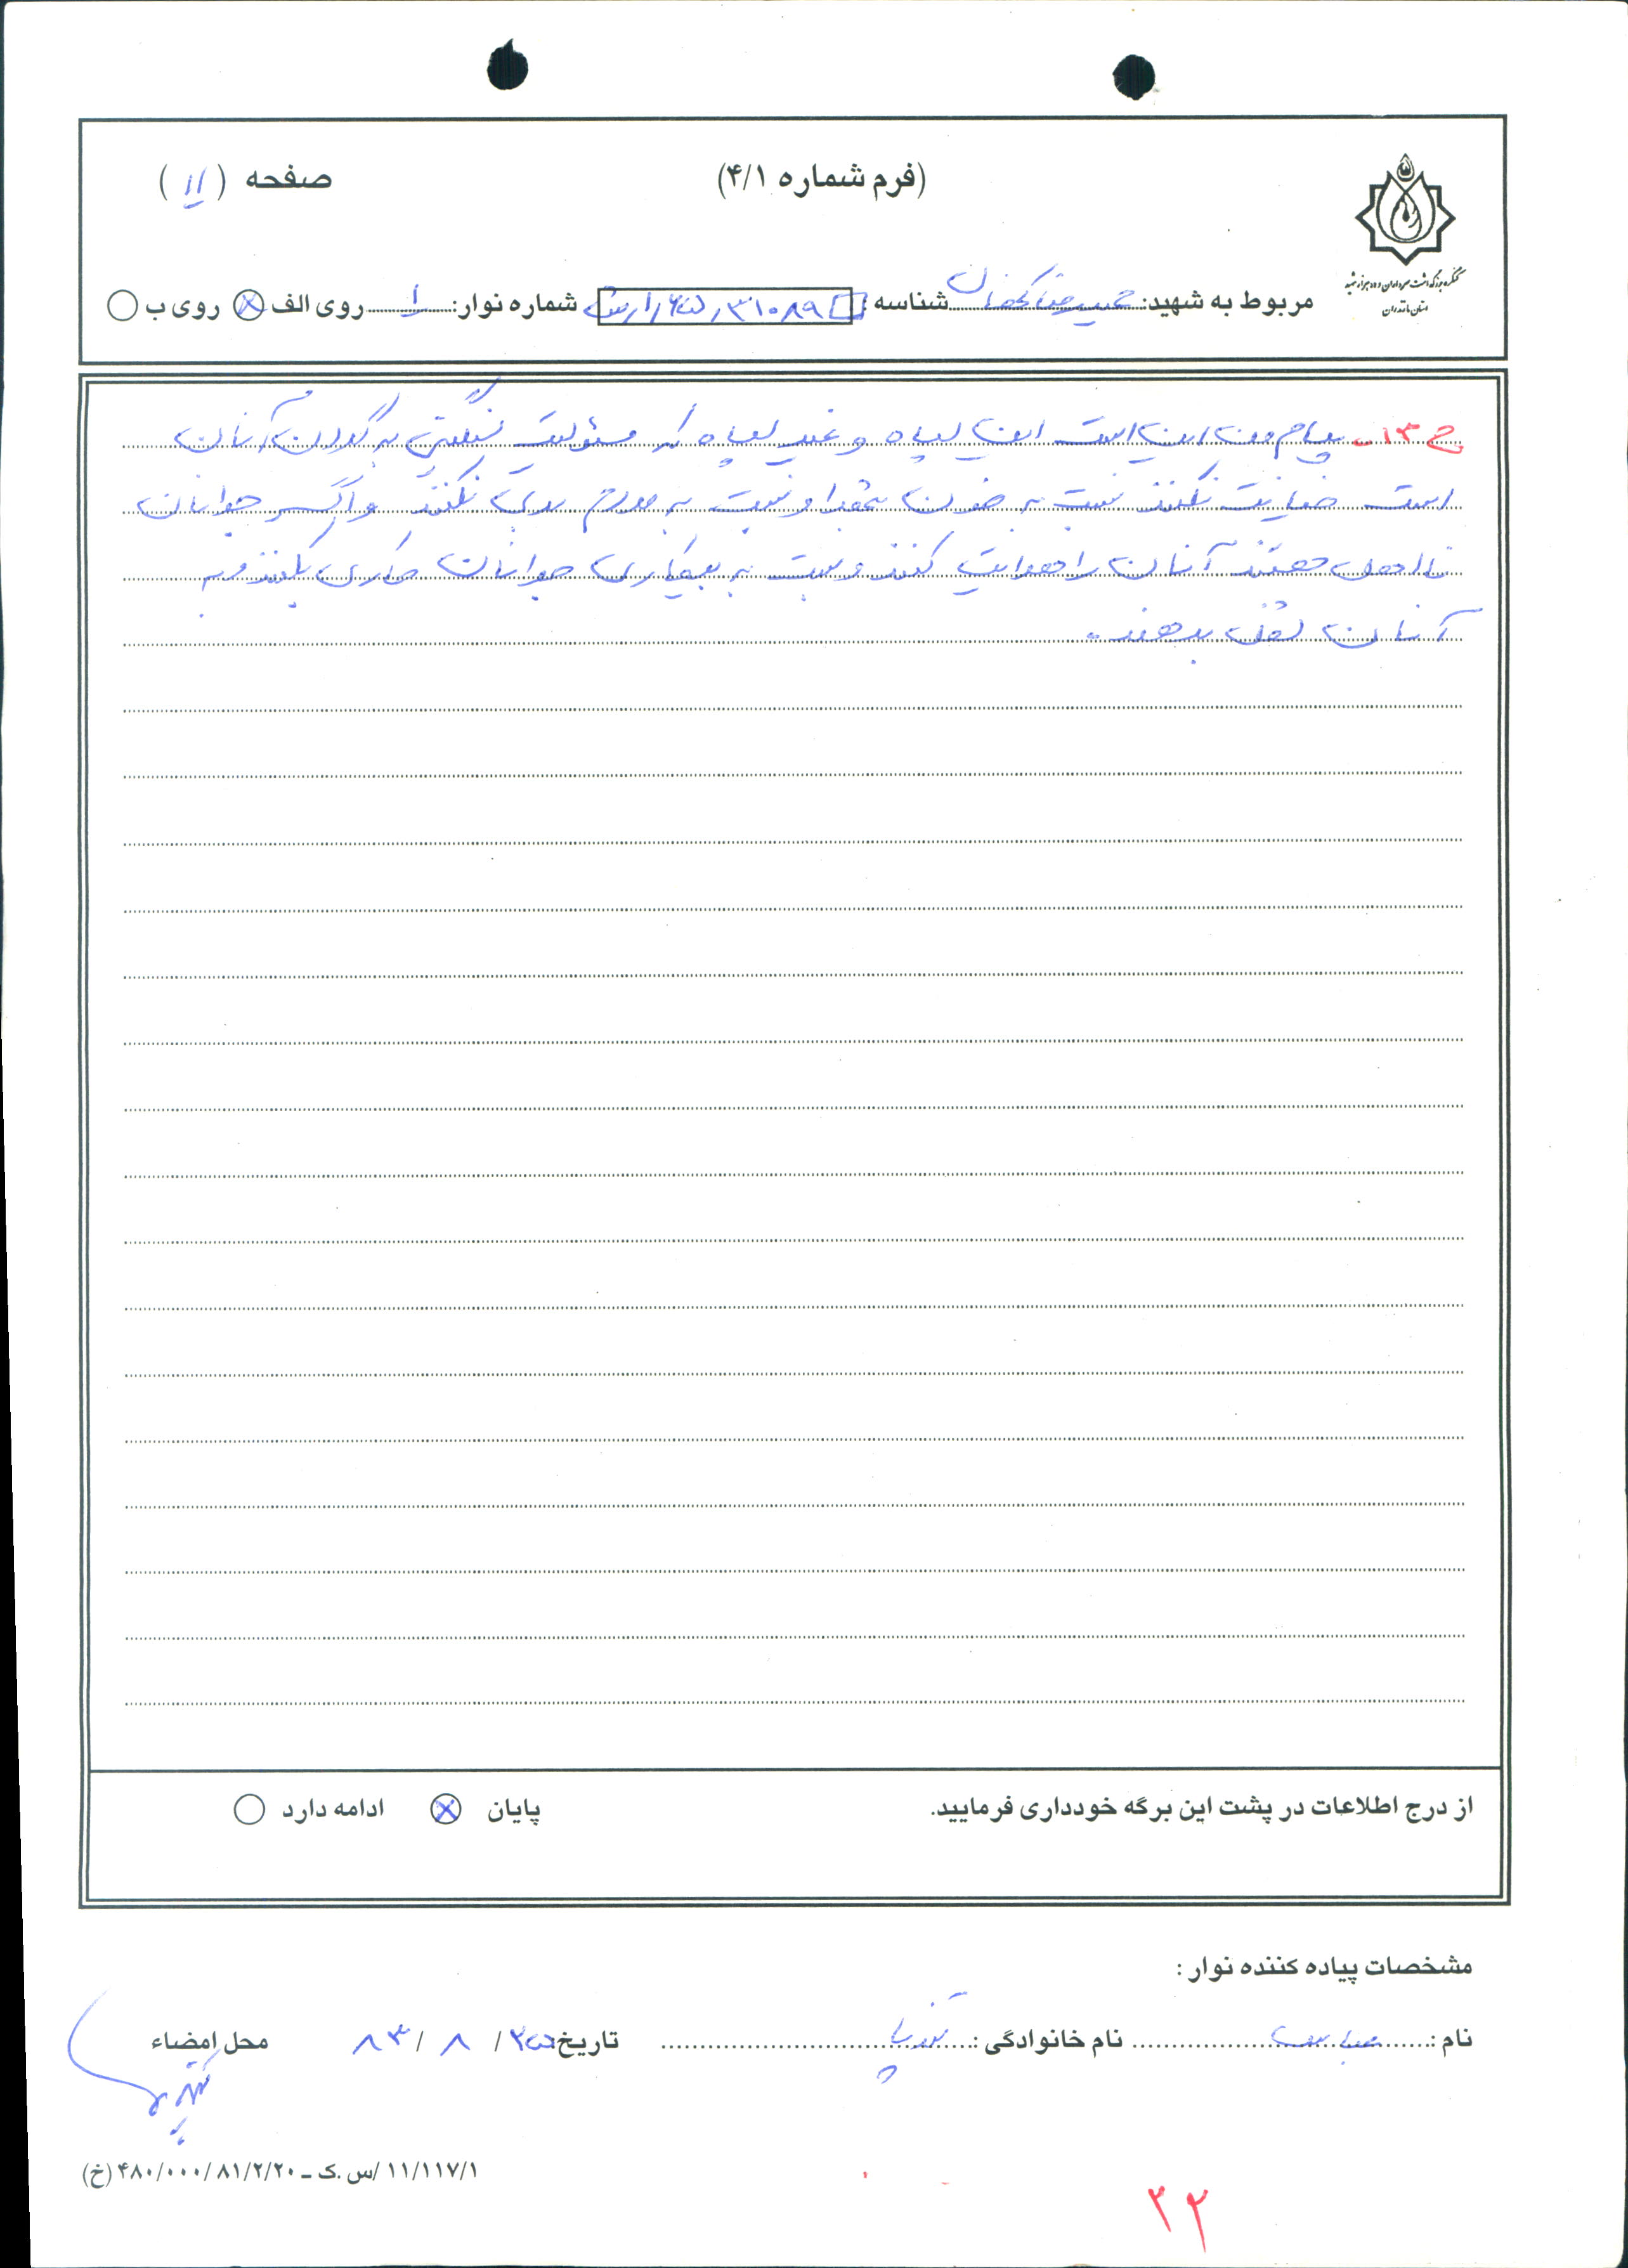 (فرم شماره ۴/۱)
صفحه (۱۱)
کنگره بزرگداشت سرداران و ده هزار شهید
استان مازندران
مربوط به شهید: شناسه: ۳۱۰۸۹ شماره نوار: ۱ روی الف روی ب
ج ۱۳- پیام من این است این سپاه و غیر سپاه که مسئولیت سنگینی به گردن آنان
است خیانت نکنند نسبت به خون شهدا و نسبت به مردم بدی نکنند و اگر جوانان
نااهل هستند آنان را هدایت کنند و نسبت به بیکاری جوانان کاری بکنند و به
آنان شغل بدهند.
از درج اطلاعات در پشت این برگه خودداری فرمایید.
پایان ادامه دارد
مشخصات پیاده کننده نوار:
نام: نام خانوادگی: تاریخ: ۲۵ / ۸ / ۸۳ محل امضاء
۱۱/۱۱۷/۱ /س.ک ـ ۴۸۰/۰۰۰/۸۱/۲/۲۰ (خ)
۲۲